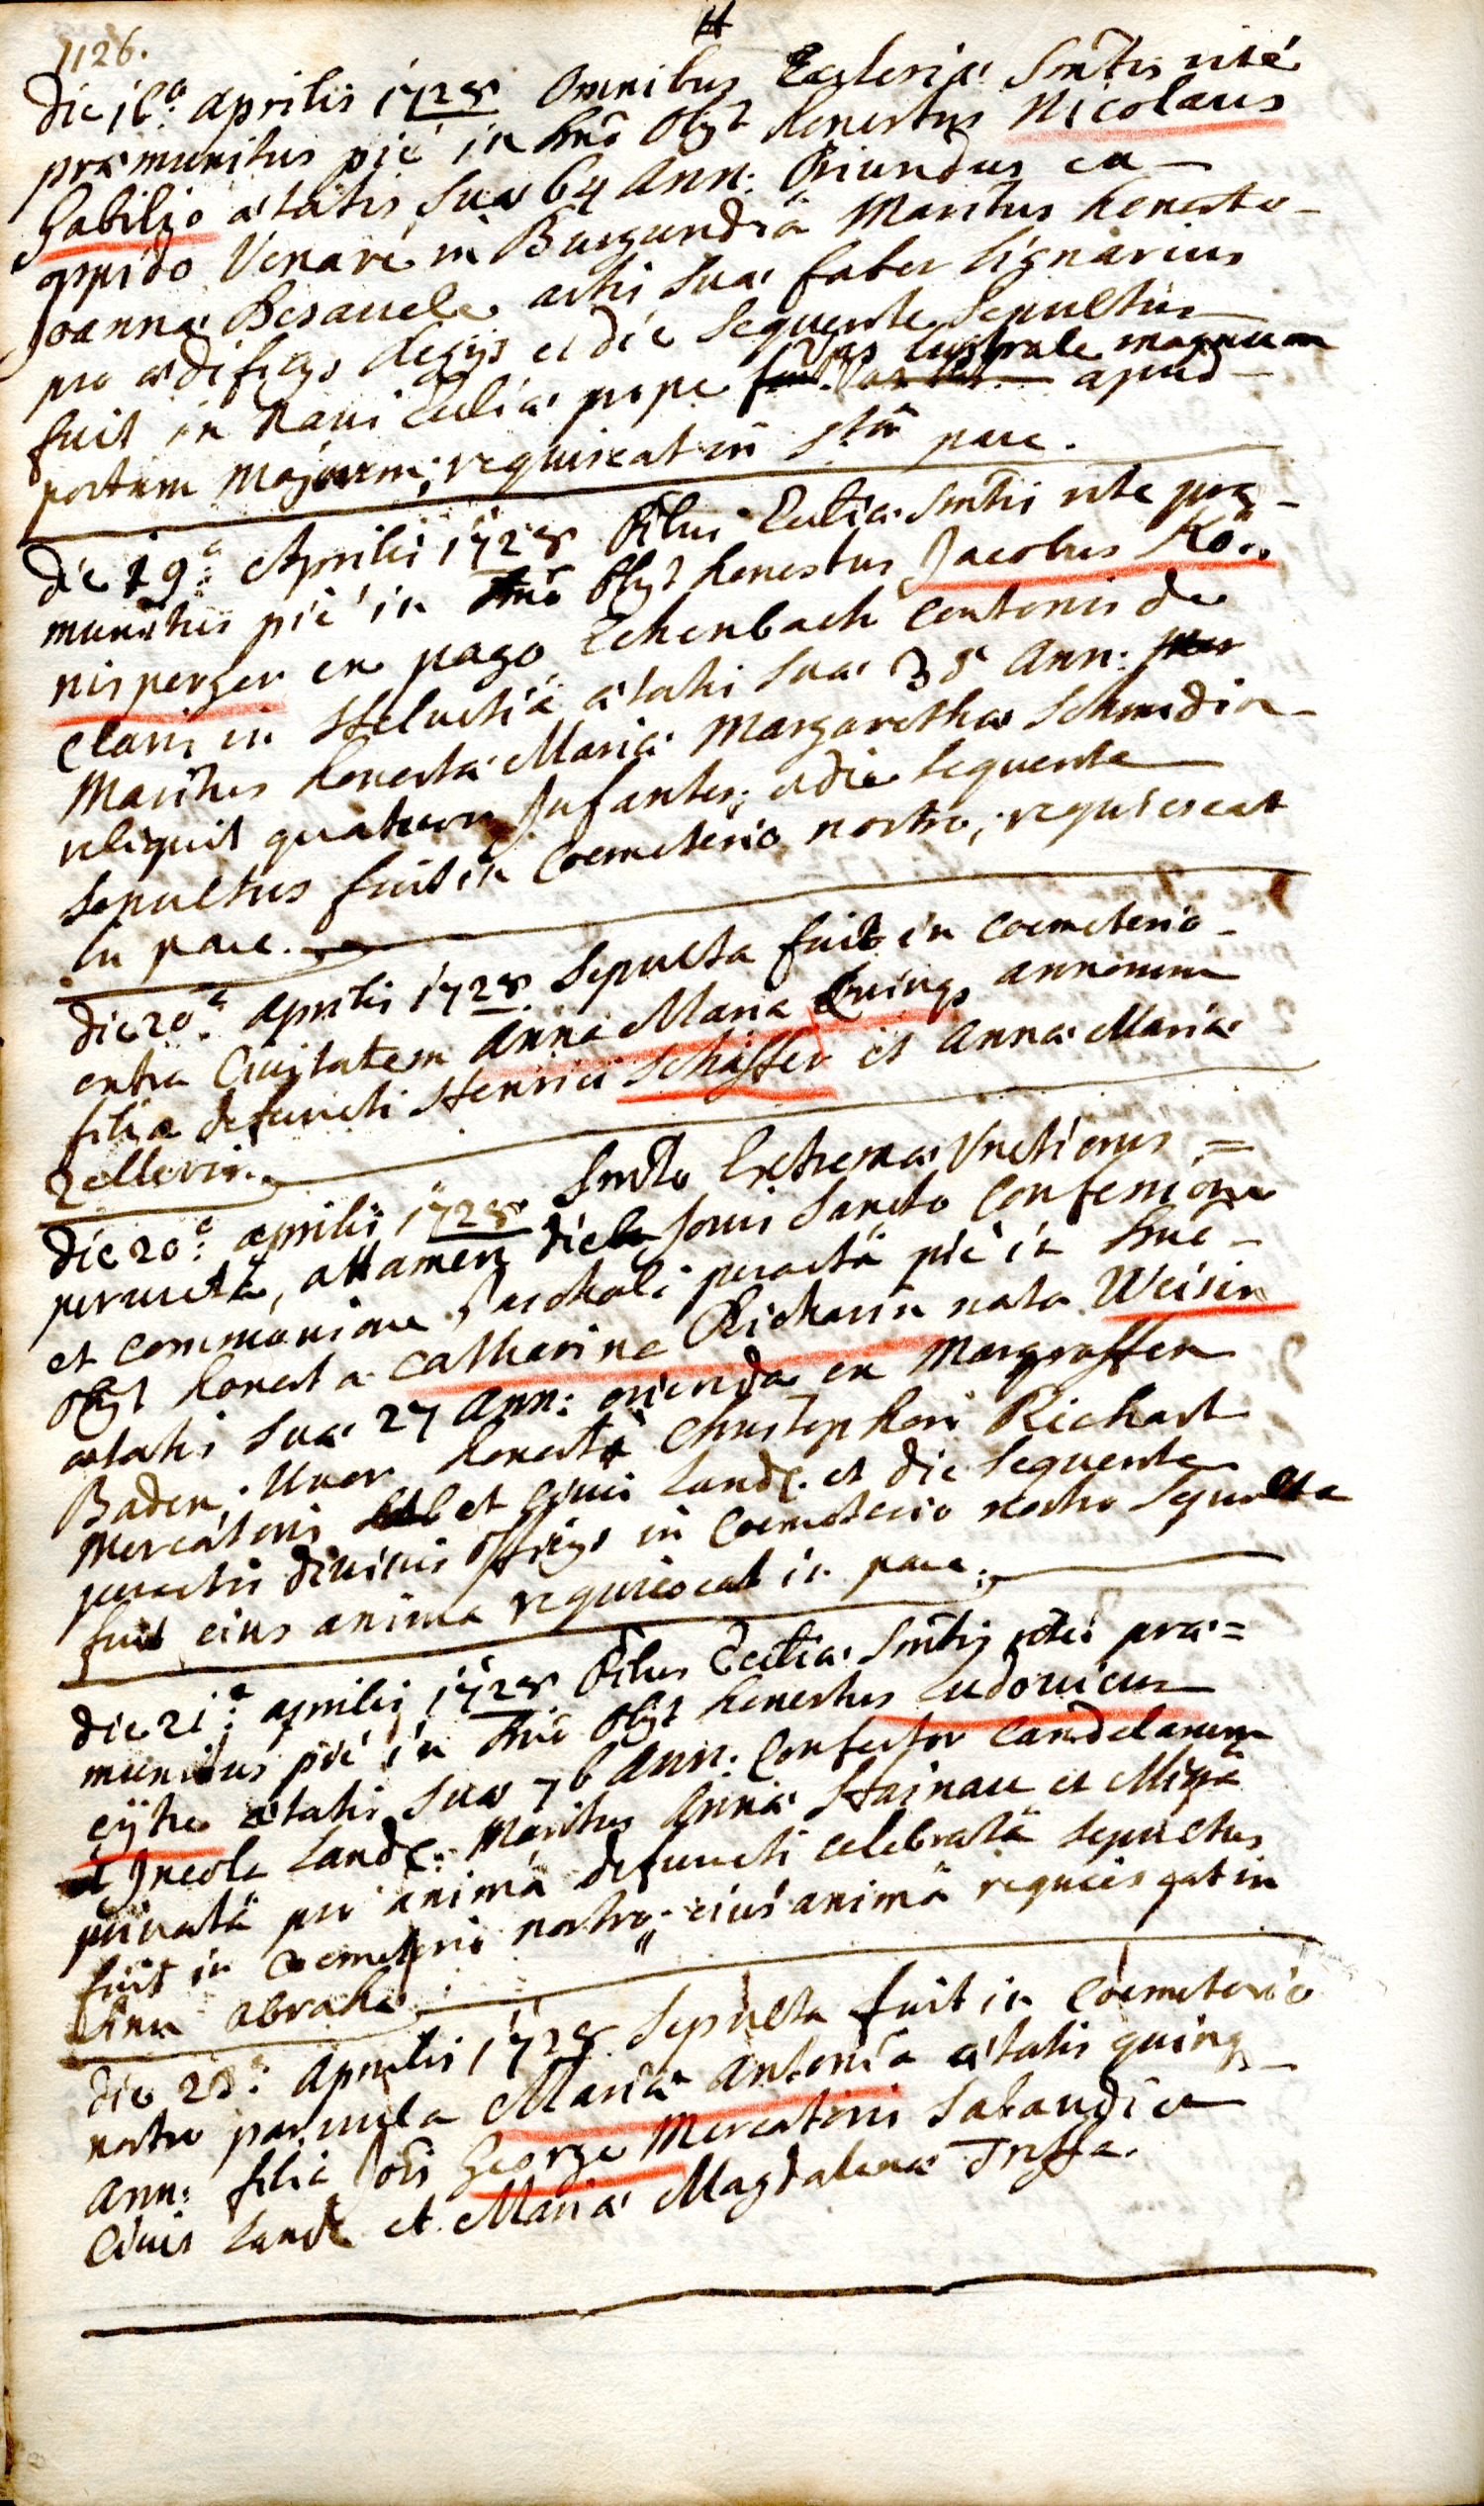 1126.
Die 16a Aprilis 1728 Omnibus Ecclesiæ Smtis rité
præmunitus pié in Dno obijt honestus Nicolaus
Gabilio ætatis suæ 64 Ann: Oriundus ex
oppido Venare in Burgundiâ Maritus honestæ
Joannæ Besauele artis suæ faber lignarius
pro ædificijs Regijs et die sequente sepultus
fuit in Navi Eccliæ prope vas lustrale magnum apud
portam Majorem; requiescat in stâ pace.
Die 19a Aprilis 1728 Oibus Eccliæ Smtis rite præ-
munitus pié in Dno obijt honestus Jacobus Kö-
nisperger ex pago Echenbach Centonis de
Claris in Helvetiâ ætatis suæ 38 Ann:
Maritus honestæ Mariæ Margarethæ Schmidin
reliquit quatuor Infantes; et die sequente
sepultus fuit in Coemeterio nostro; requiescat
in pace.
Die 20a Aprilis 1728 Sepulta fuit in Coemeterio
extra Civitatem Anna Maria Quinq annorum
filia defuncti Henrici Schäffer et Annæ Mariæ
Zellerin.
Die 20a aprilis 1728 Smto Extremæ Unctionis =
perunctâ, attamen die Jovis Sancto Confessione
et communione Paschali peractâ pié in Dno
obijt honesta Catharina Richartin nata Weisin
ætatis suæ 27 Ann: orienda ex Margraffen
Baden; Uxor honesti Christophori Richart
Mercatoris et Civis Land. et die sequente
peractis Divinis Officijs in Coemeterio nostro sepulta
fuit eius anima requiescat in pace.
Die 21a aprilis 1728 Oibus Eccliæ Smtis rité præ=
munitus pié in Dno obijt honestus Ludovicus
Cythe ætatis suæ 76 Ann: Confector Candelarum
et Incola Land: Maritus Annæ Hainau et Missâ
privatâ pro animâ defuncti celebratâ sepultus
fuit in Coemeterio nostro; eius animâ requiescat in
sinu Abrahæ
Die 23a Aprilis 1728 Sepulta fuit in Coemeterio
nostro parvula Maria Antonia ætatis quinq
Ann: filia Jois George Mercatoris Sabaudiæ
Civis Land et Mariæ Magdalenæ